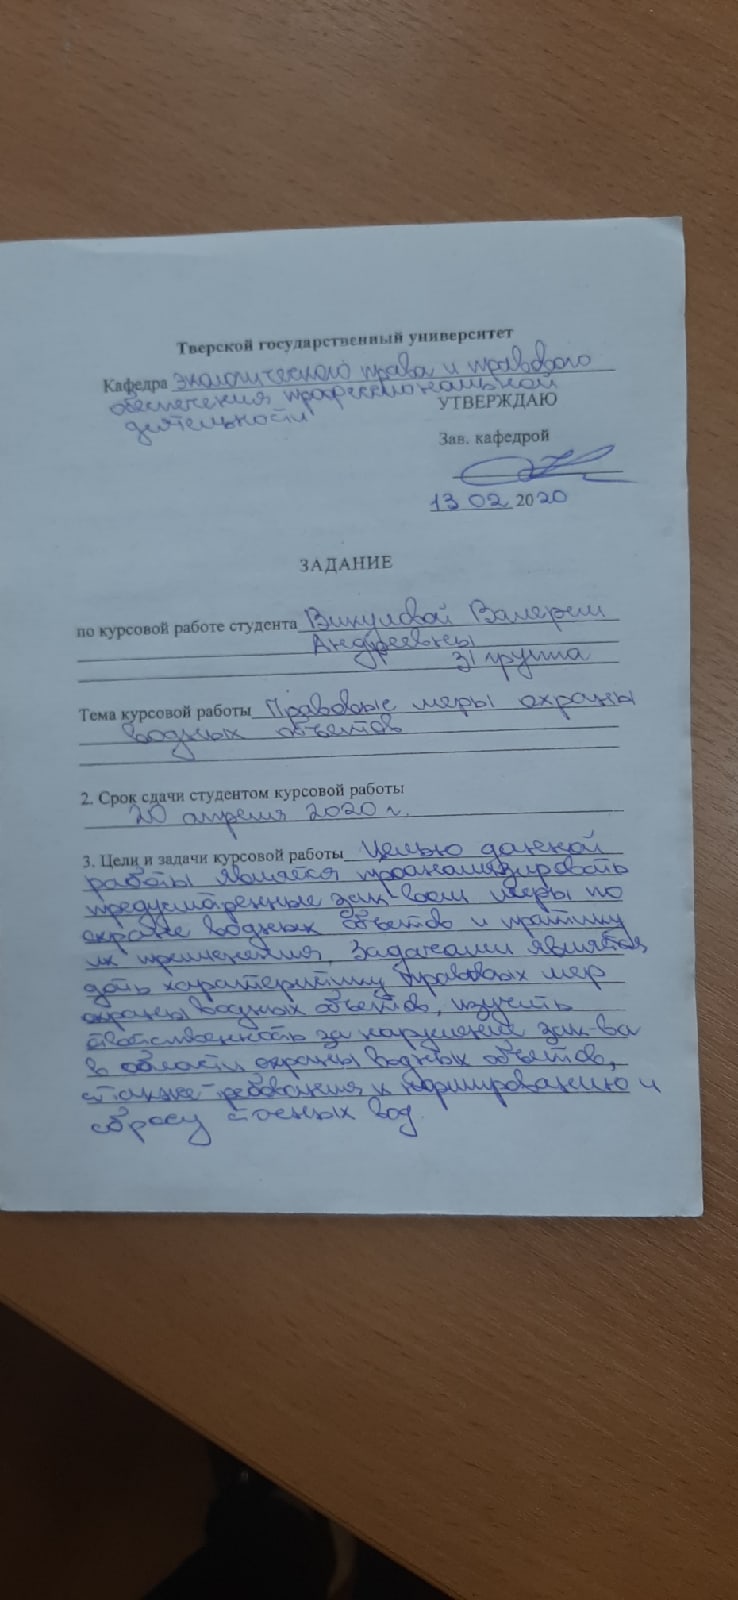 Тверской государственный университет
Кафедра экологического права и правового
обеспечения профессиональной
деятельности
УТВЕРЖДАЮ
Зав. кафедрой
13 02 2020
ЗАДАНИЕ
по курсовой работе студента Викуловой Валерии
Андреевны
31 группа
Тема курсовой работы Правовые меры охраны
водных объектов
2. Срок сдачи студентом курсовой работы
20 апреля 2020 г.
3. Цели и задачи курсовой работы Целью данной
работы является проанализировать
предусмотренные зак-вом меры по
охране водных объектов и практику
их применения. Задачами являются
дать характеристику правовых мер
охраны водных объектов, изучить
ответственность за нарушение зак-ва
в области охраны водных объектов,
а также требования к нормированию и
сбросу сточных вод.